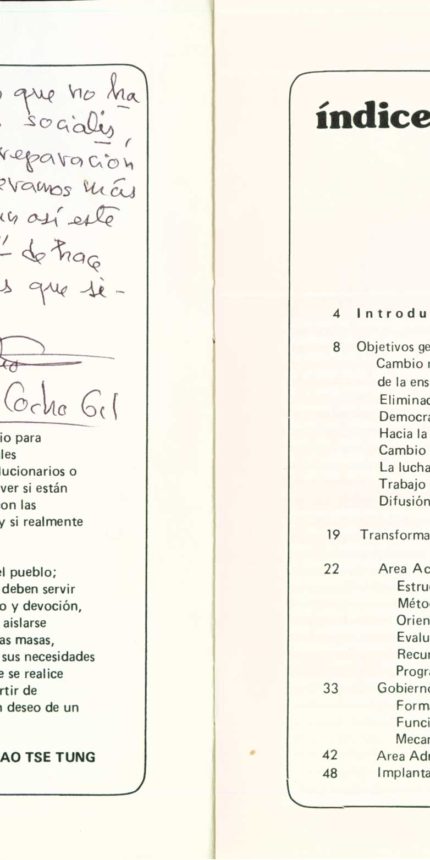 que no ha
sociales,
reparación
evamos más
un así este
de hace
s que si-
Cocho Gil
io para
les
lucionarios o
ver si están
con las
y si realmente
el pueblo;
deben servir
o y devoción,
aislarse
as masas,
sus necesidades
e se realice
rtir de
n deseo de un
AO TSE TUNG
índice
4 Introdu
8 Objetivos ge
Cambio r
de la ens
Eliminac
Democra
Hacia la
Cambio
La lucha
Trabajo
Difusión
19 Transforma
22 Area Ac
Estruc
Métod
Orien
Evalu
Recur
Progra
33 Gobierno
Forma
Funci
Mecar
42 Area Adr
48 Implanta